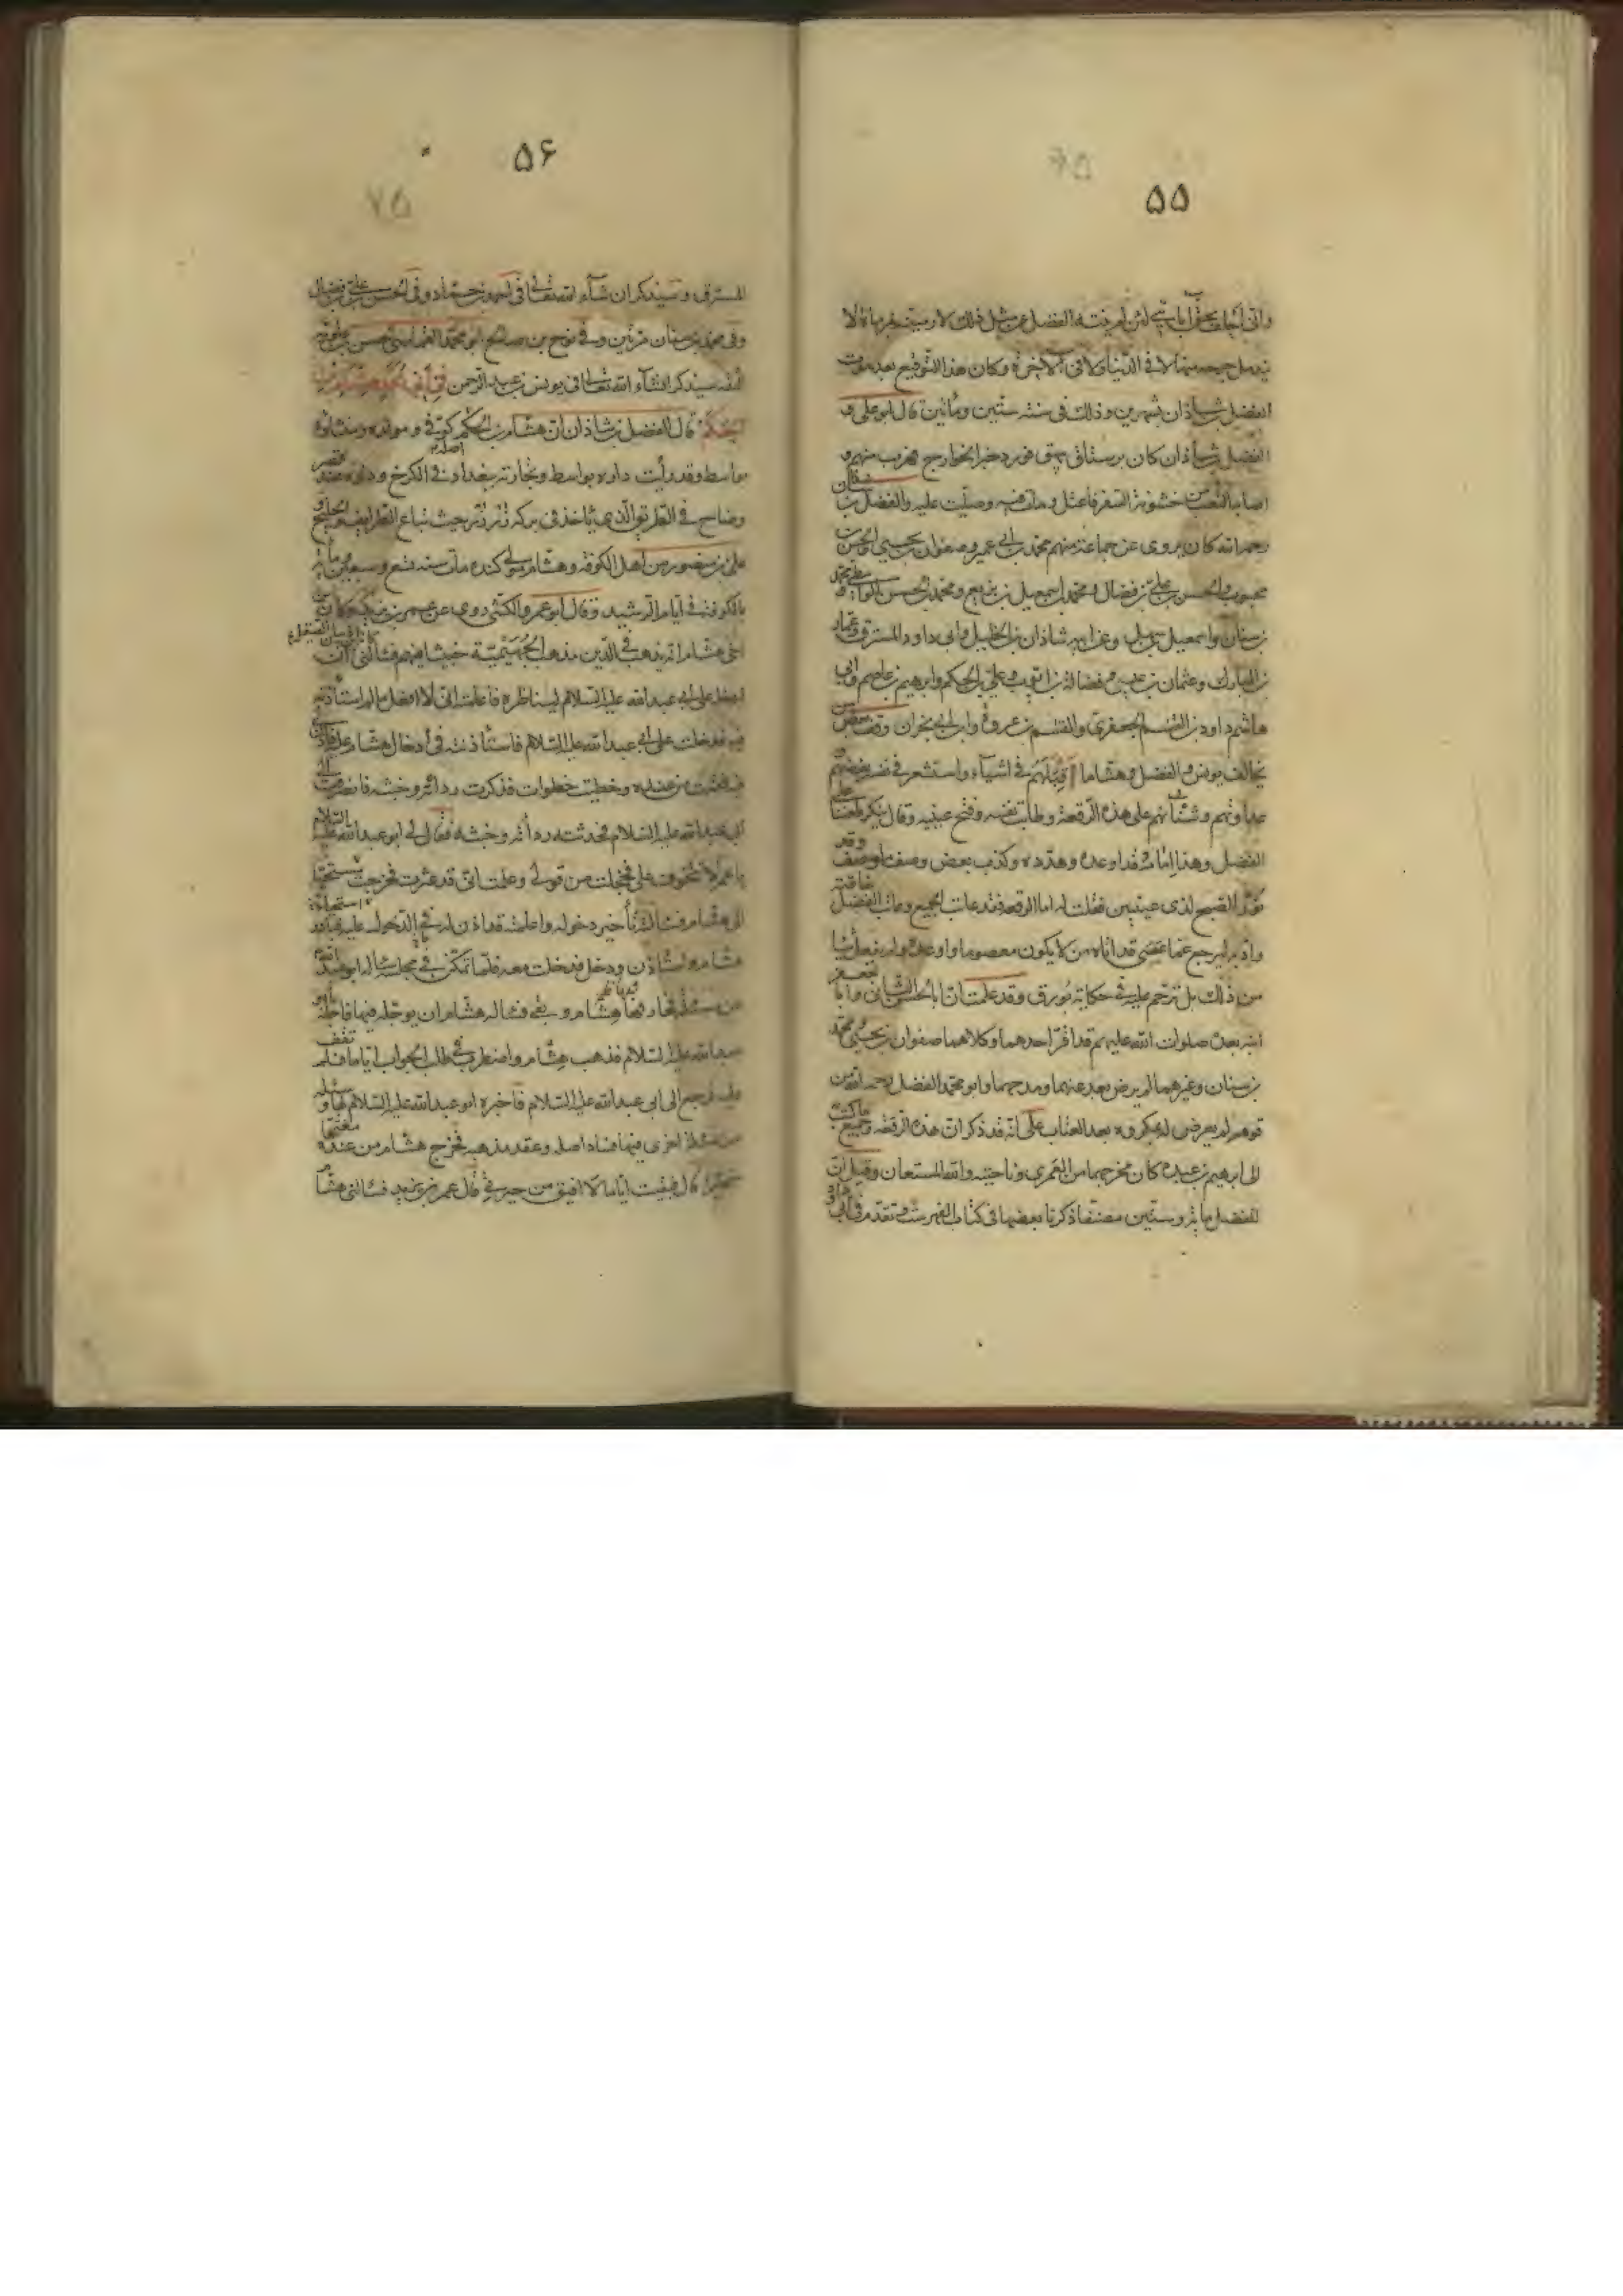 ۵۵
وانى احلف بحق آبائى لئن لم ينته الفضل عن مثل ذلك لارمينه بمرماة لا
يندمل جرحه منها لا فى الدنيا ولا فى الآخرة وكان هذا التوقيع بعد موت
الفضل بن شاذان بشهرين وذلك فى سنة ستين ومأتين قال ابو على و
الفضل بن شاذان كان برستاق بيهق فورد خبر الخوارج فهرب منهم و
اصابه التعب من خشونة السفر فاعتل ومات منه وصليت عليه والفضل بن شاذان
رحمه الله كان يروى عن جماعة منهم محمد بن ابى عمير وصفوان بن يحيى والحسن بن
محبوب والحسن بن على بن فضال ومحمد بن اسمعيل بن بزيع ومحمد بن الحسن الواسطى ومحمد
بن سنان واسمعيل بن سهل وعن ابيه شاذان بن الخليل وابى داود المسترق وعمار
بن المبارك وعثمان بن عيسى وفضالة بن ايوب وعلى بن الحكم وابرهيم بن عاصم وابى
هاشم داود بن القسم الجعفرى والقسم بن عروة وابن ابى نجران وقف بعض من
يخالف يونس والفضل وهشاما قبلهم فى اشياء واستشعر فى نفسه بغضهم و
عداوتهم وشنأتهم على هذه الرقعة وطابت نفسه وفتح عينيه وقال ينكر طعننا على
الفضل وهذا امامه قد اوعده وهدده وكذب بعض وصف ما وصف وقد
نور الصبح لذى عينين فقلت له اما الرقعة فقد عاتب الجميع وعاتب الفضل خاصة
وادبه ليرجع عما عسى قد اتاه من لا يكون معصوما واوعده ولم يفعل شيئا
من ذلك بل ترحم عليه فى حكاية بورق وقد علمت ان ابا الحسن الثانى وابا جعفر
ابنه بعده صلوات الله عليهم قد اقر احدهما وكلاهما صفوان بن يحيى ومحمد
بن سنان وغيرهما لم يرض بعد عنهما ومدحهما وابو محمد الفضل رحمه الله من
قوم لم يعرض له بمكروه بعد العتاب على انه قد ذكر ان هذه الرقعة وجميع ما كتب
الى ابرهيم بن عبده كان مخرجهما من العمرى وناحيته والله المستعان وقيل ان
للفضل مائة وستين مصنفا ذكرنا بعضها فى كتاب الفهرست وتقدم فى ابى
۵۶
المسترق وسيذكر ان شاء الله تعالى فى وفى الحسن بن على بن فضال
وفى محمد بن سنان مرتين وفى نوح بن صالح ابو محمد
سيذكر انشاء الله تعالى فى يونس بن عبد الرحمن فى ابى محمد هشام بن
الحكم قال الفضل بن شاذان ان هشام بن الحكم اصله كوفى ومولده ومنشاؤه
بواسط وقد رأيت داره بواسط وتجارته ببغداد فى الكرخ وداره عند قصر
وضاح فى الطريق الذى يأخذ فى بركة زلزل حيث تباع الطرايف والخلنج و
على بن منصور من اهل الكوفة وهشام مولى كنده مات سنة تسع وسبعين ومائة
بالكوفة فى ايام الرشيد وقال ابو عمرو الكشى روى عن عمر بن يزيد وكان ابن
اخى هشام انه يذهب فى الدين مذهب الجهمية خبيثا فيهم فسألنى ان
ادخله على ابى عبد الله عليه السلام ليناظره فاعلمته انى لا افعل ما لم استأذنه
فيه فدخلت على ابى عبد الله عليه السلام فاستأذنته فى ادخال هشام عليه فاذن لى
فيه فقمت من عنده وخطيت خطوات فذكرت ردائه وخبثه فانصرفت الى
ابى عبد الله عليه السلام فحدثته ردأئه وخبثه فقال لى ابو عبد الله عليه السلام
يا عمر تتخوف على فخجلت من قولى وعلمت انى قد عثرت فخرجت مستحييا
الى هشام فسألته تأخير دخوله واعلمته قد اذن له فى الدخول عليه فبادر
هشام واستأذن ودخل فدخلت معه فلما تمكن فى مجلسه سأله ابو عبد الله
عن مسئلة فحار فيها هشام وبقى فسأله هشام ان يوجله فيها فاجله ابو
عبد الله عليه السلام فذهب هشام واضطرب فى طلب الجواب اياما فلم يقف
عليه فرجع الى ابى عبد الله عليه السلام فاخبره ابو عبد الله عليه السلام بها وسئله
عن مسئلة اخرى فيها فساد اصله وعقد مذهبه فخرج هشام من عنده مغتما
متحيرا قال فبقيت اياما لا افيق من حيرتى قال عمر بن يزيد فسألنى هشام